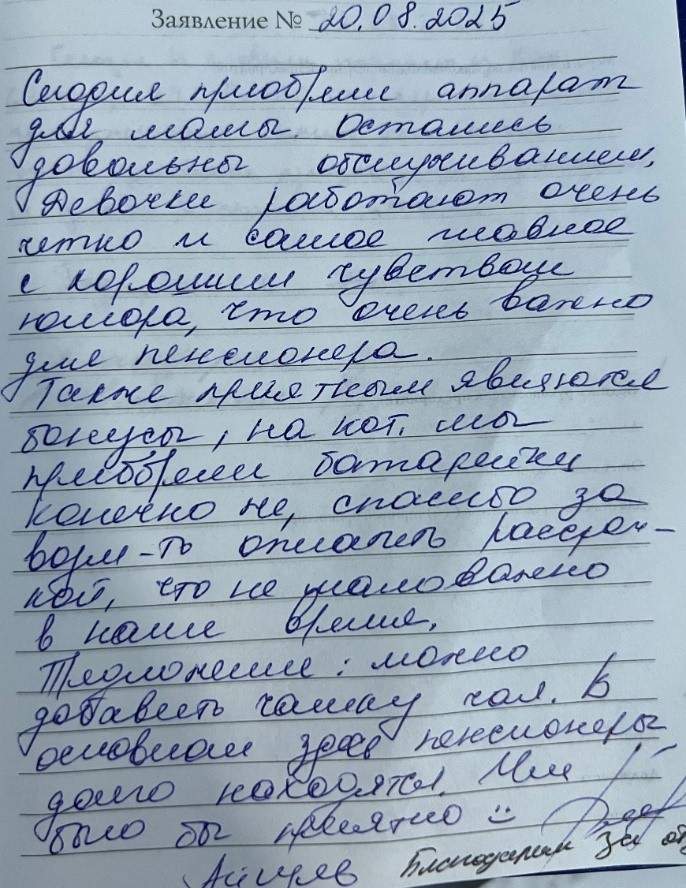 Заявление № 20.08.2025
Сегодня приобрели аппарат
для мамы. Остались
довольны обслуживанием.
Девочки работают очень
четко и самое главное
с хорошим чувством
юмора, что очень важно
для пенсионера.
Также приятным являются
бонусы, на кот. мы
приобрели батарейки
конечно же, спасибо за
возм-ть оплатить рассроч-
кой, что не маловажно
в наше время.
Предложение: можно
добавить чашку чая. В
основном здесь пенсионеры
долго находятся. Им
было бы приятно
Благодарим за от